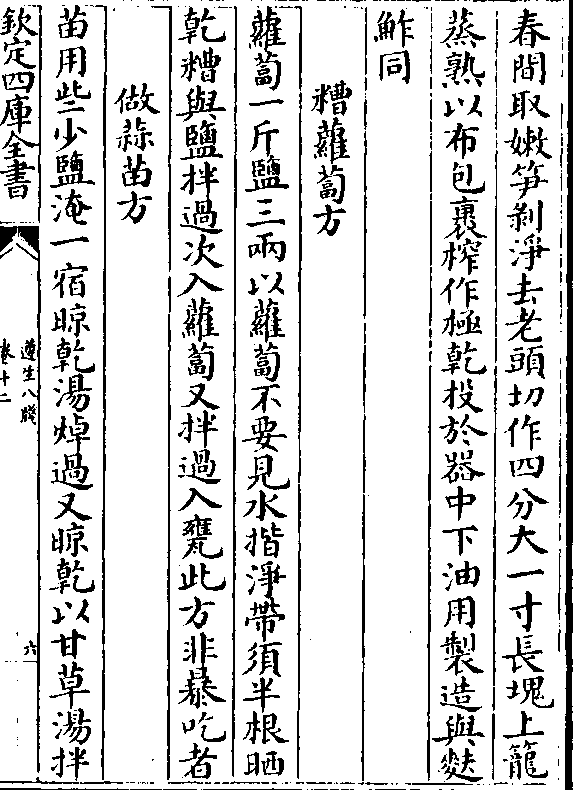 春間取嫩笋剥淨去老頭切作四分大一寸長塊上籠
蒸熟以布包裹榨作極乾投於器中下油用製造與麩
鮓同
糟蘿蔔方
蘿蔔一斤鹽三兩以蘿蔔不要見水揩淨帶須半根晒
乾糟與鹽拌過次入蘿蔔又拌過入甕此方非暴吃者
做蒜苗方
苗用些少鹽淹一宿晾乾湯焯過又晾乾以甘草湯拌
欽定四庫全書
遵生八牋
卷十二
六